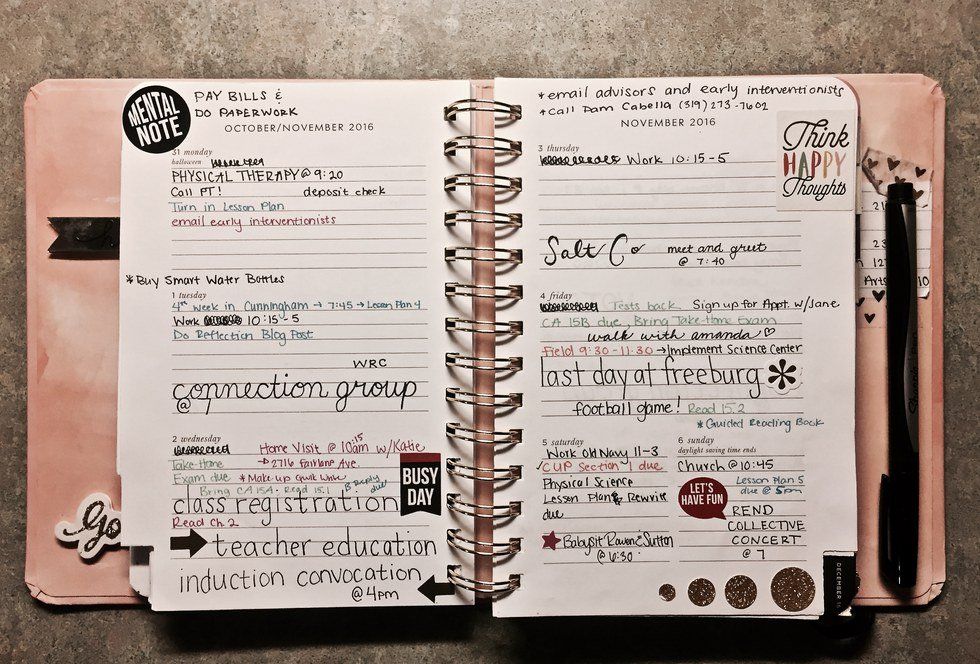 MENTAL NOTE
PAY BILLS &
DO PAPERWORK
OCTOBER/NOVEMBER 2016
31 monday
halloween
PHYSICAL THERAPY @ 9:20
Call PT! deposit check
Turn in Lesson Plan
email early interventionists
*Buy Smart Water Bottles
1 tuesday
4th week in Cunningham → 7:45 → Lesson Plan 4
Work 10:15-5
Do Reflection Blog Post
WRC
connection group
@
2 wednesday
Home Visit @ 10:15am w/Katie
Take-Home → 2716 Fairlane Ave.
Exam due *Make-up Quick Write
Bring CA15A. Read 15.1 B. Reply due
BUSY DAY
class registration
Read Ch. 2
teacher education
induction convocation
@ 4pm
*email advisors and early interventionists
*Call Pam Cabella (319) 273-7602
NOVEMBER 2016
Think HAPPY Thoughts
3 thursday
Work 10:15-5
Salt/Co meet and greet
@ 7:40
4 friday
Tests back Sign up for Appt. w/Jane
CA 15B due, Bring Take-Home Exam
walk with amanda ♡
Field 9:30-11:30 → Implement Science Center
last day at freeburg *
football game! Read 15.2
*Guided Reading Back
5 saturday
Work Old Navy 11-3
✓ CUP Section 1 due
Physical Science
Lesson Plan & Rewrite
due
★ Babysit Sutton
@ 6:30
6 sunday
daylight saving time ends
Church @ 10:45
LET'S HAVE FUN
Lesson Plan 5
due @ 5pm
REND
COLLECTIVE
CONCERT
@ 7
DECEMBER
Go
21
23
12
Arts
10